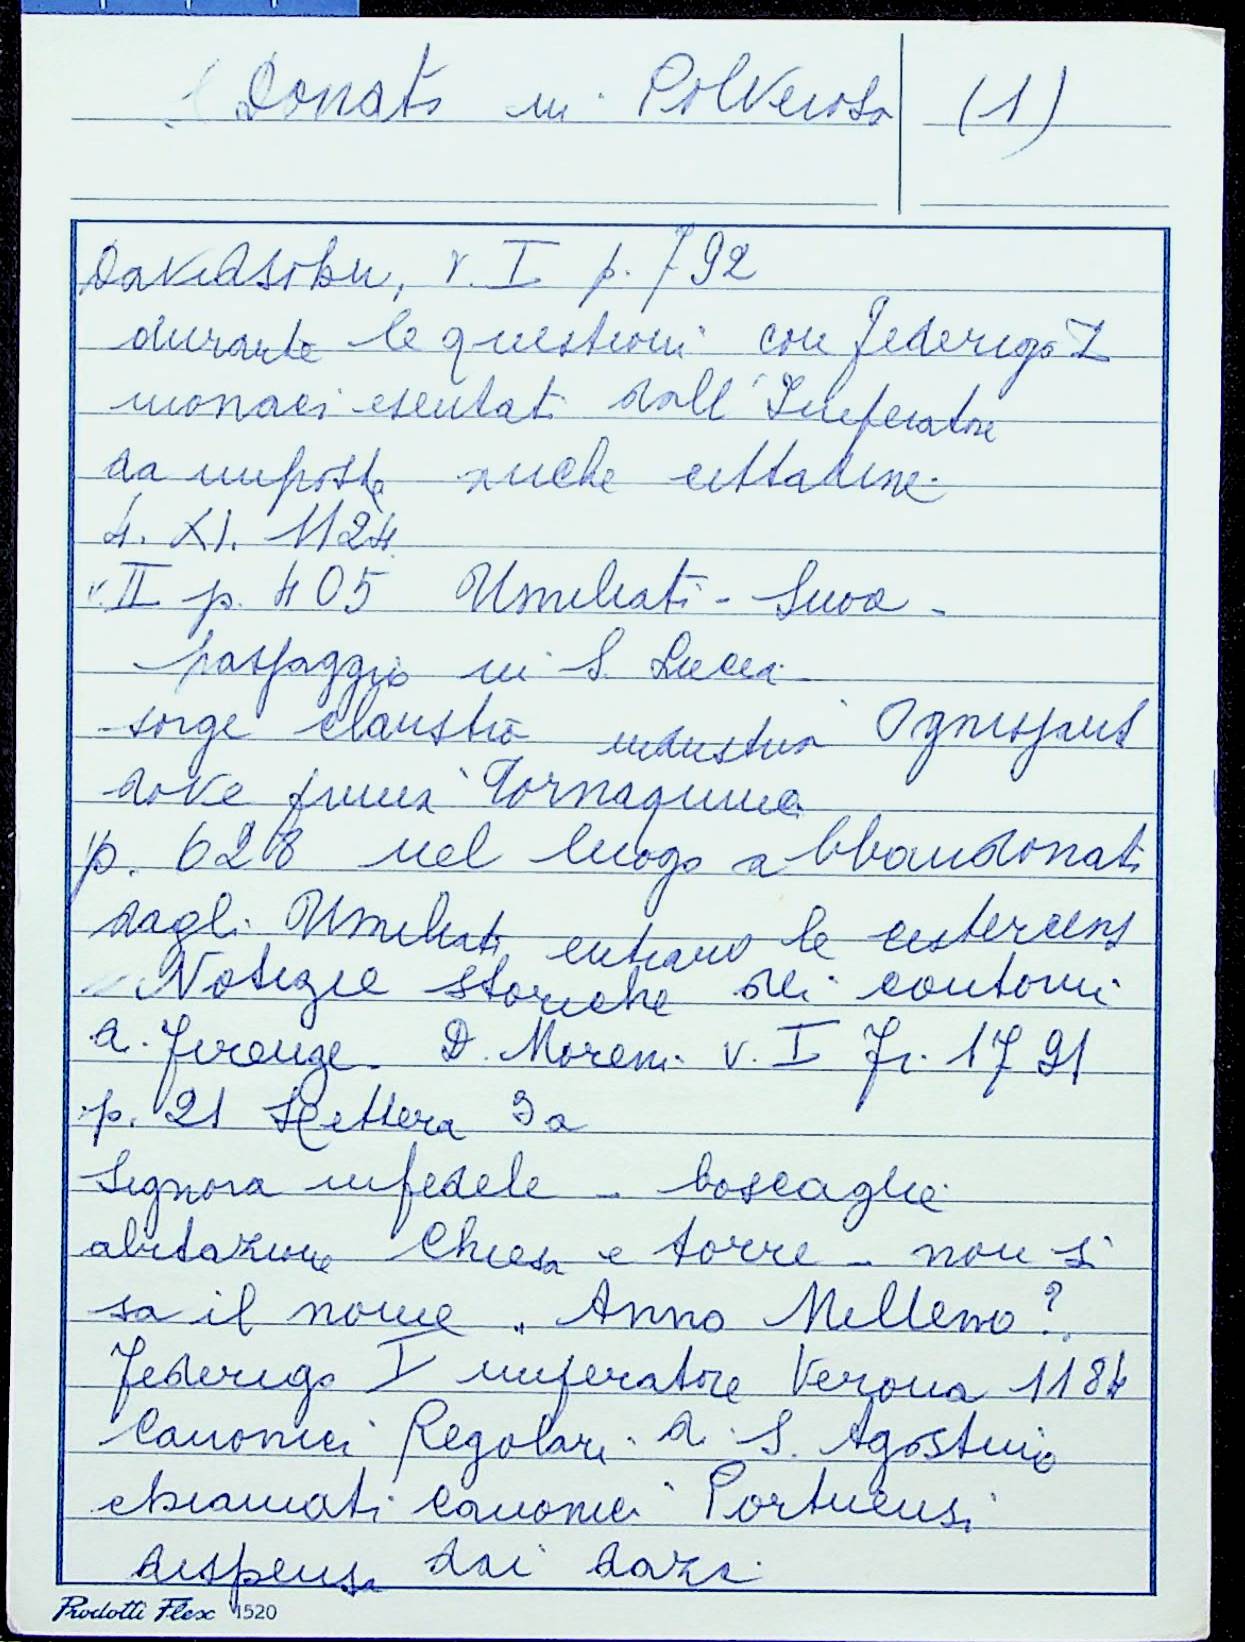 S Donato in Polverosa (1)
Davidsohn, v. I p. 792
durante le questioni con Federigo I
monaci esentati dall'Imperatore
da imposte anche cittadine.
4. XI. 1124
v. II p. 405 Umiliati -
passaggio in S. Lucia
sorge claustro industria Ognissanti
dove prima Tornaquinci
p. 628 nel luogo abbandonato
dagli Umiliati entrano le cistercensi
Notizie storiche dei contorni
di Firenze D. Moreni v. I Fi. 1791
p. 21 Lettera 3a
Signora infedele - boscaglie
abitazione Chiesa e torre - non si
sa il nome. Anno Milleno?
Federigo I imperatore Verona 1184
Canonici Regolari di S. Agostino
chiamati canonici Portuensi
dispensa dai dazi
Prodotti Flex 1520